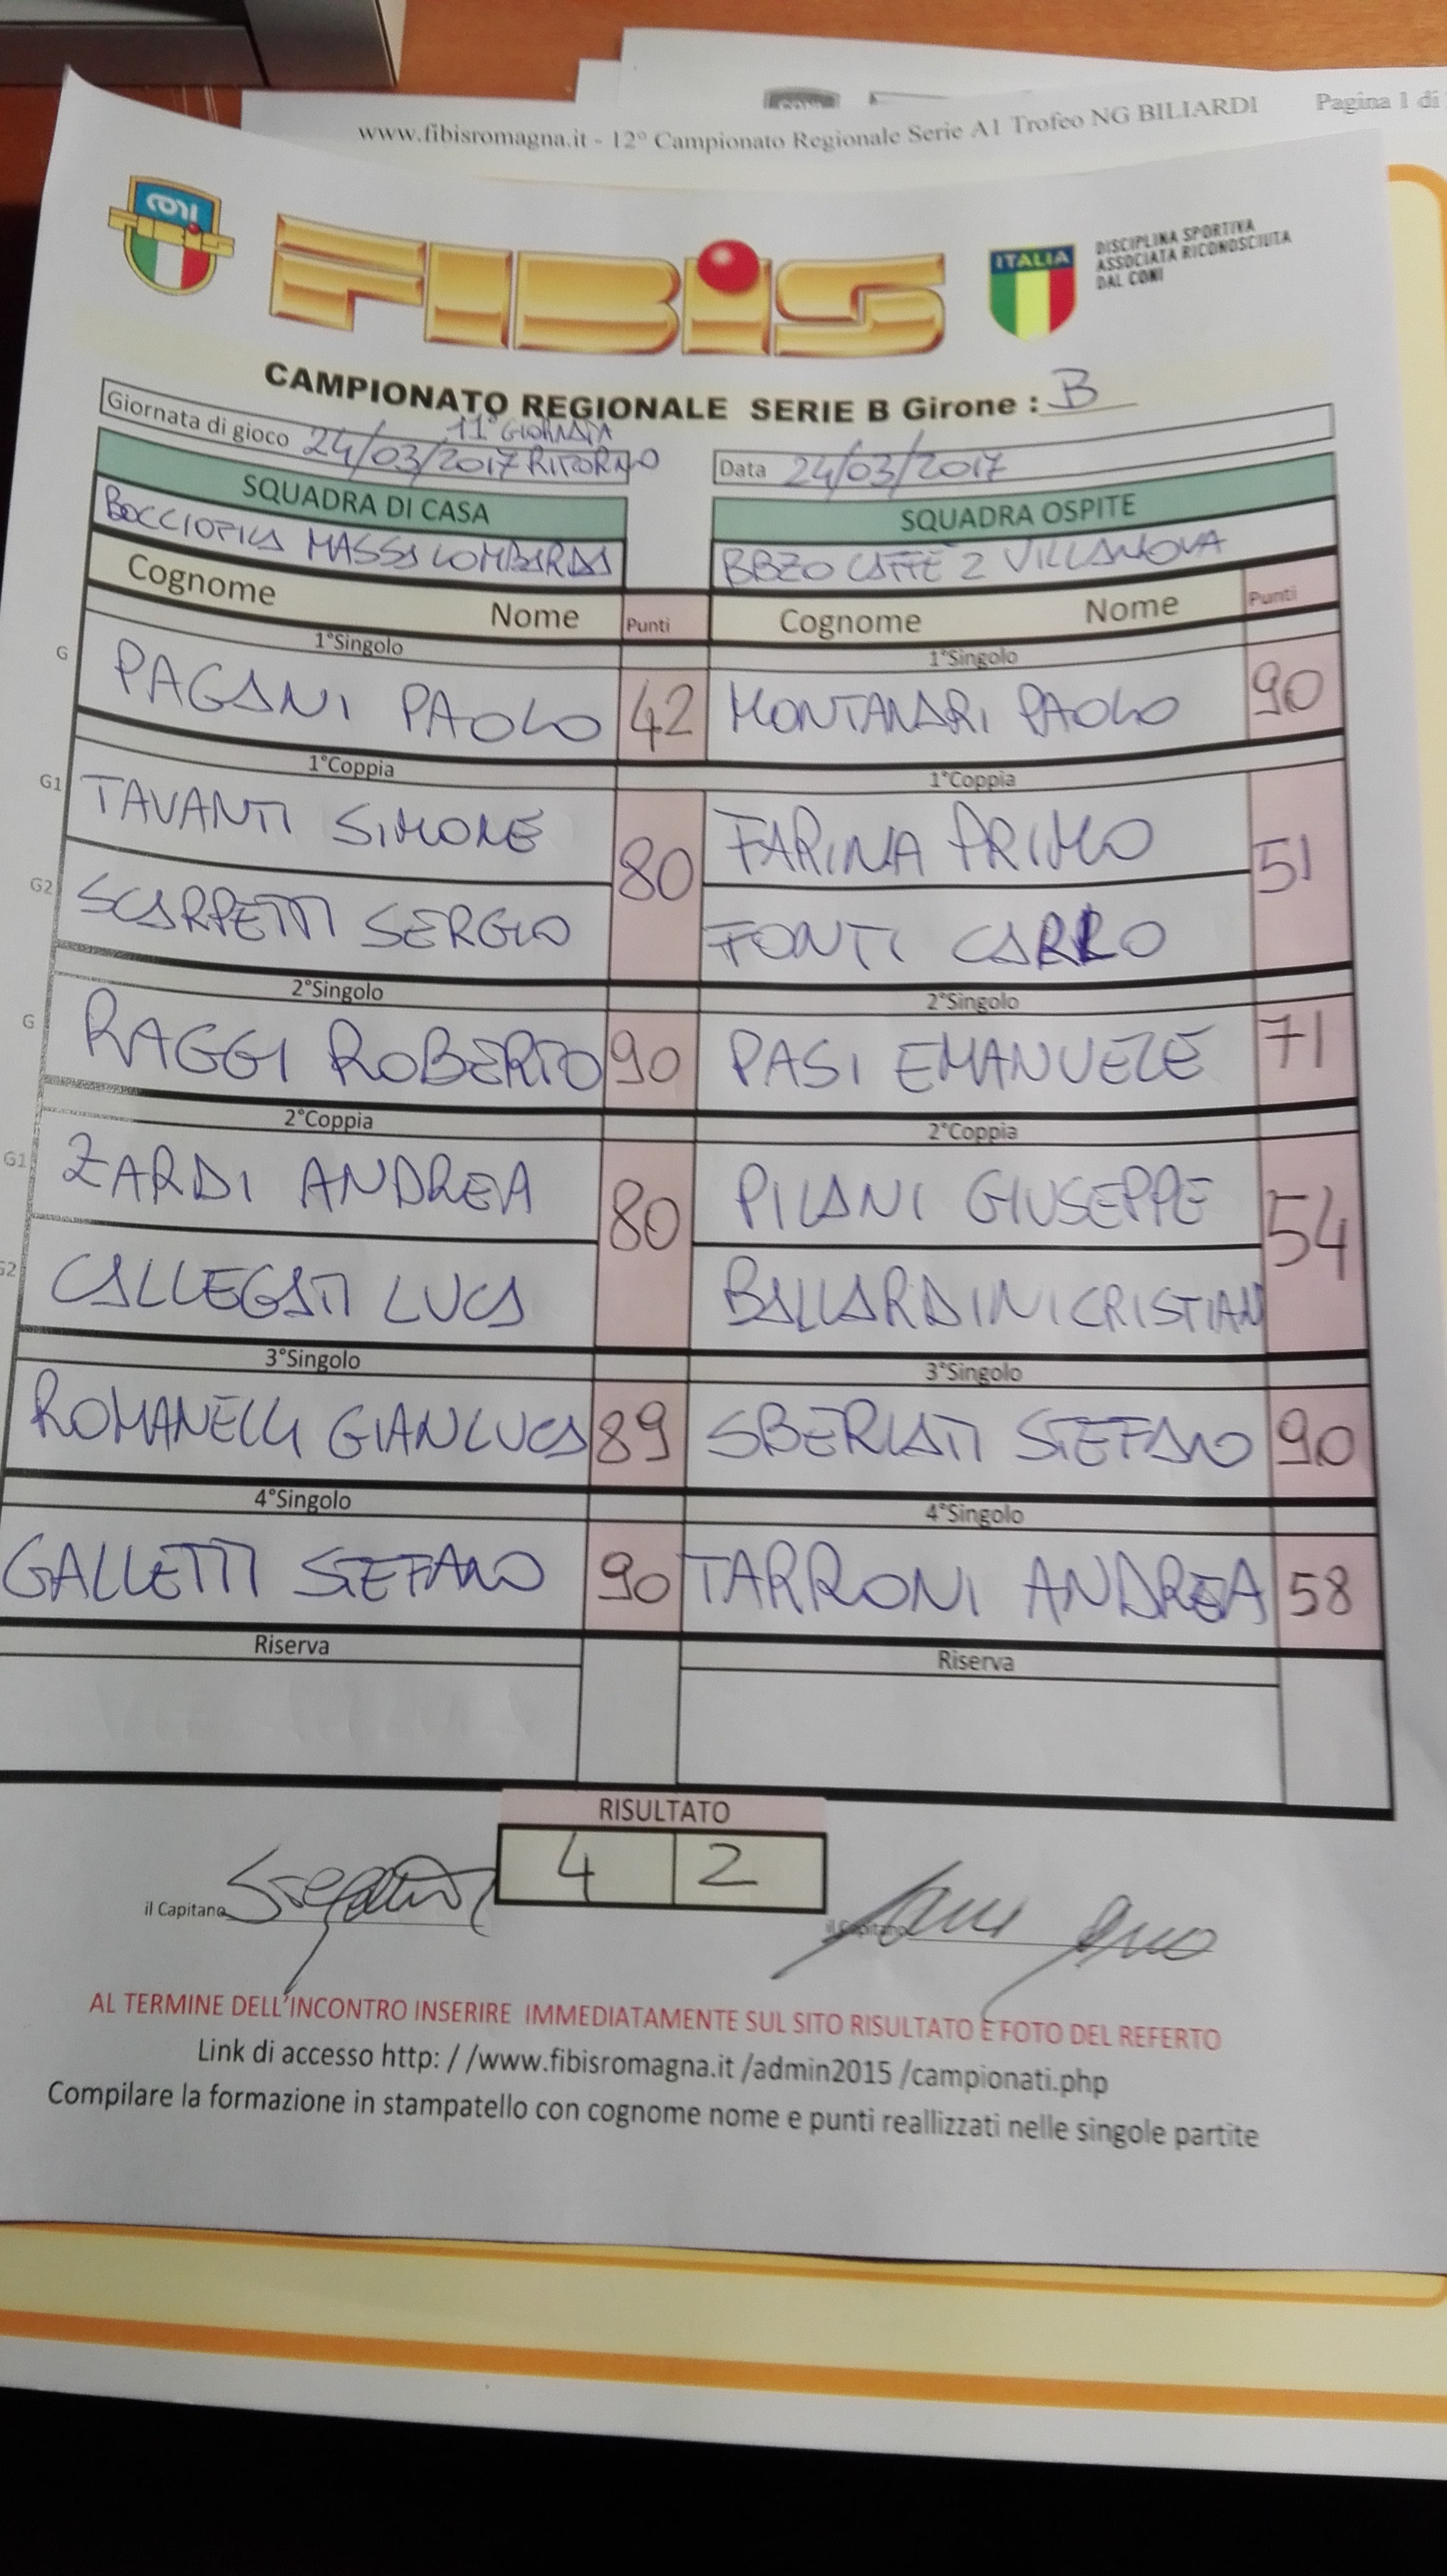 www.fibisromagna.it - 12° Campionato Regionale Serie A1 Trofeo NG BILIARDI Pagina 1 di
CONI
FIBIS
FIBIS
ITALIA
DISCIPLINA SPORTIVA
ASSOCIATA RICONOSCIUTA
DAL CONI
CAMPIONATO REGIONALE SERIE B Girone : B
11° GIORNATA
Giornata di gioco 24/03/2017 RITORNO Data 24/03/2017
SQUADRA DI CASA SQUADRA OSPITE
BOCCIOFILA MASSA LOMBARDA CAFFE' 2 VILLANOVA
Cognome Nome Punti Cognome Nome Punti
1°Singolo 1°Singolo
G PAGANI PAOLO 42 MONTANARI PAOLO 90
1°Coppia 1°Coppia
G1 TAVANTI SIMONE 80 FARINA PRIMO 51
G2 SCARPETTI SERGIO FONTI CARLO
2°Singolo 2°Singolo
G RAGGI ROBERTO 90 PASI EMANUELE 71
2°Coppia 2°Coppia
G1 ZARDI ANDREA 80 PILANI GIUSEPPE 54
G2 CALLEGATI LUCA BALLARDINI CRISTIAN
3°Singolo 3°Singolo
ROMANELLI GIANLUCA 89 SBERLATI STEFANO 90
4°Singolo 4°Singolo
GALLETTI STEFANO 90 TARRONI ANDREA 58
Riserva Riserva
RISULTATO
4 2
il Capitano il Capitano
AL TERMINE DELL'INCONTRO INSERIRE IMMEDIATAMENTE SUL SITO RISULTATO E FOTO DEL REFERTO
Link di accesso http: / /www.fibisromagna.it /admin2015 /campionati.php
Compilare la formazione in stampatello con cognome nome e punti reallizzati nelle singole partite